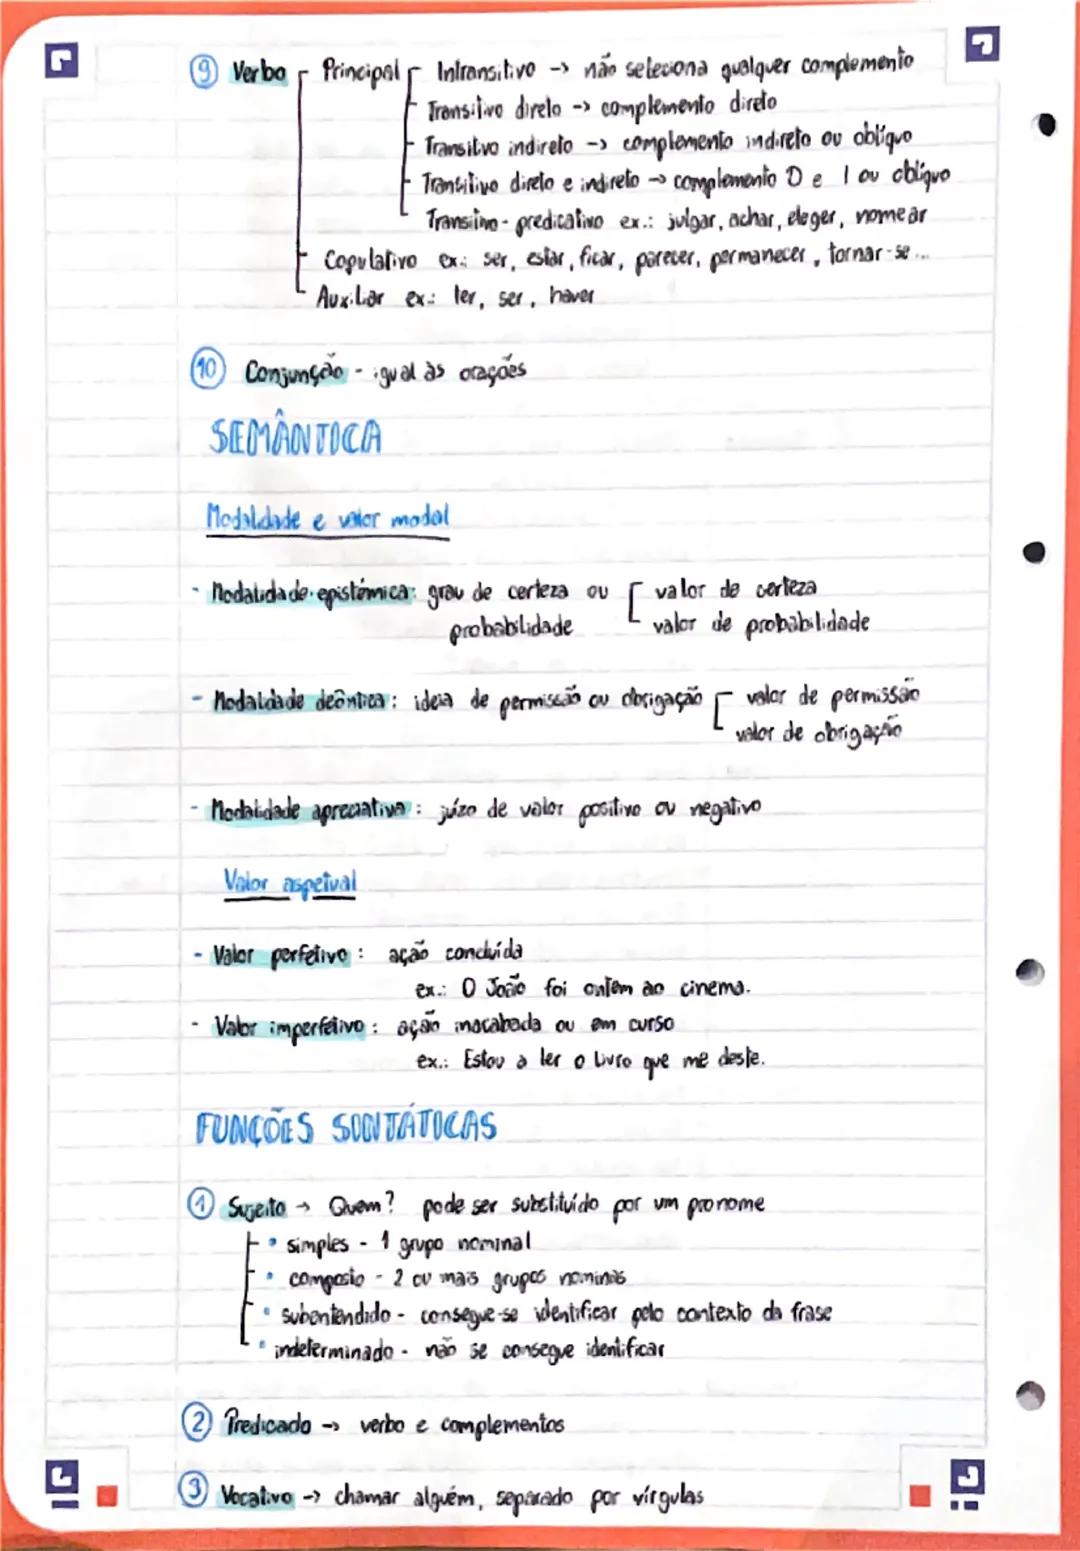 9 Verbo Principal Intransitivo -> não seleciona qualquer complemento
Transitivo direto -> complemento direto
Transitivo indireto -> complemento indireto ou oblíquo
Transitivo direto e indireto -> complemento D e I ou oblíquo
Transitivo-predicativo ex.: julgar, achar, eleger, nomear
Copulativo ex.: ser, estar, ficar, parecer, permanecer, tornar-se...
Auxiliar ex.: ter, ser, haver
10 Conjunção - igual às orações
SEMÂNTICA
Modalidade e valor modal
- Modalidade epistémica: grau de certeza ou valor de certeza
probabilidade valor de probabilidade
- Modalidade deôntica: ideia de permissão ou obrigação valor de permissão
valor de obrigação
- Modalidade apreciativa: juízo de valor positivo ou negativo
Valor aspetual
- Valor perfetivo: ação concluída
ex.: O João foi ontem ao cinema.
- Valor imperfetivo: ação inacabada ou em curso
ex.: Estou a ler o livro que me deste.
FUNÇÕES SINTÁTICAS
1 Sujeito -> Quem? pode ser substituído por um pronome
• simples - 1 grupo nominal
• composto - 2 ou mais grupos nominais
• subentendido - consegue-se identificar pelo contexto da frase
• indeterminado - não se consegue identificar
2 Predicado -> verbo e complementos
3 Vocativo -> chamar alguém, separado por vírgulas